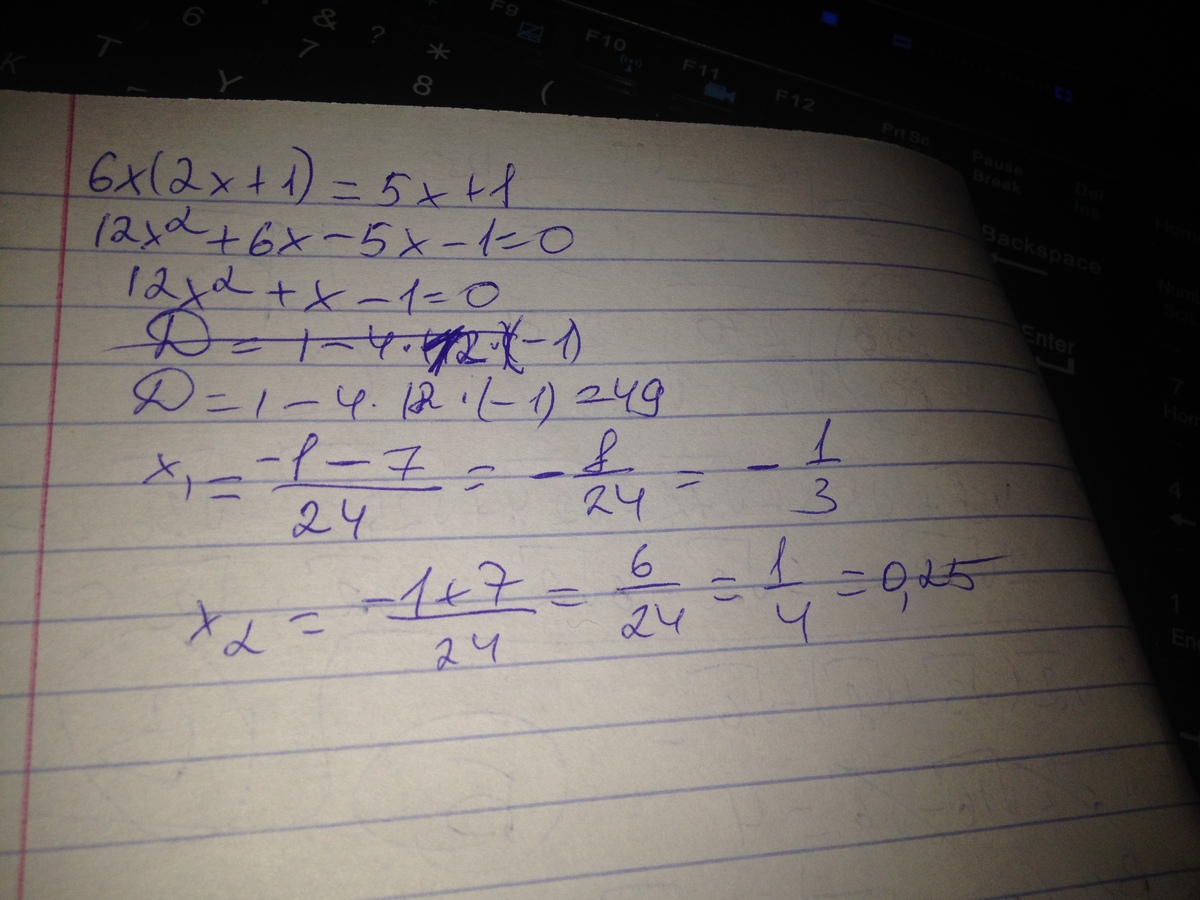 6 & 7 ? * 8 ( F9 F10 F11 F12 Prt Sc Pause Break Del Ins
K T Y Backspace
Enter
6x(2x+1) = 5x+1
12x² + 6x - 5x - 1 = 0
12x² + x - 1 = 0
D = 1 - 4 · 12 · (-1)
D = 1 - 4 · 12 · (-1) = 49
x₁ = \frac{-1-7}{24} = -\frac{8}{24} = -\frac{1}{3}
x₂ = \frac{-1+7}{24} = \frac{6}{24} = \frac{1}{4} = 0,25